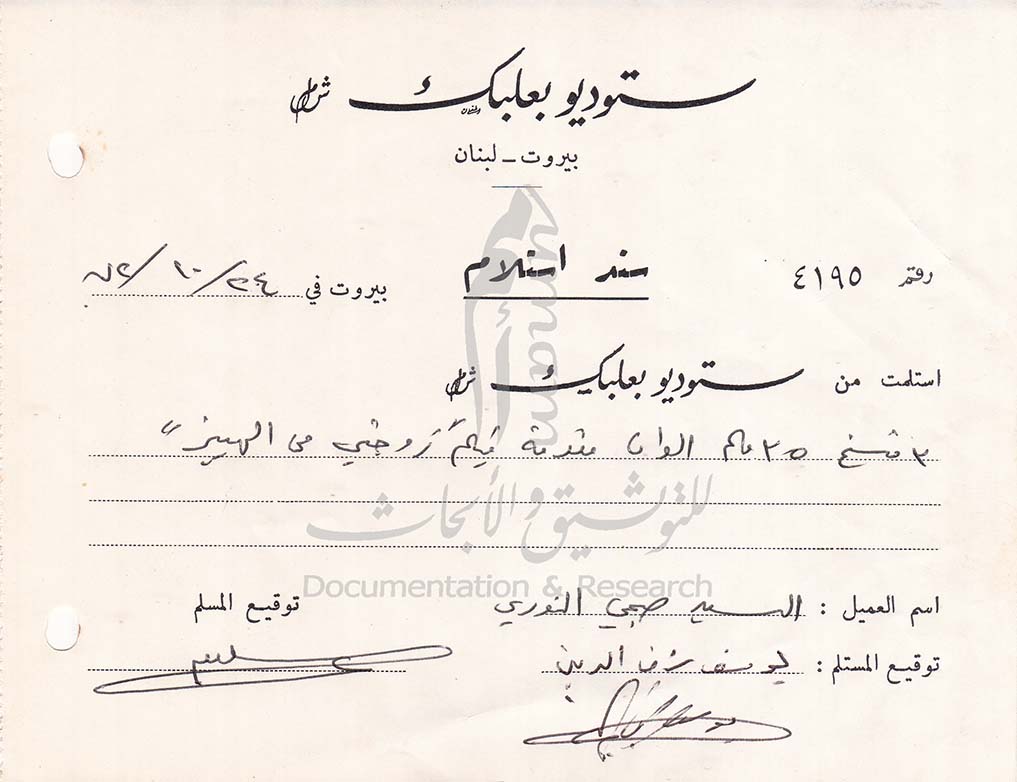 ستوديو بعلبك ش م ل
بيروت - لبنان
رقم ٤١٩٥
سند استلام
بيروت في ٢٤/١٠/٧٢
استلمت من ستوديو بعلبك ش م ل
٣ نسخ ٣٥ ملم الوان مقدمة فيلم زوجتي من الهيبز"
للتوثيق والأبحاث
Documentation & Research
اسم العميل : السيد صبحي النوري
توقيع المسلم
توقيع المستلم : يوسف شرف الدين
سليم